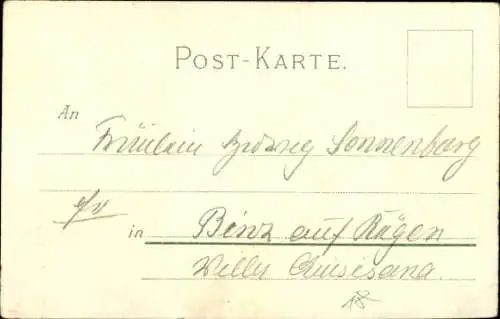 POST-KARTE.
An
Fräulein Hedwig Sonnenberg
in Binz auf Rügen
Villa Quisisana.
18-